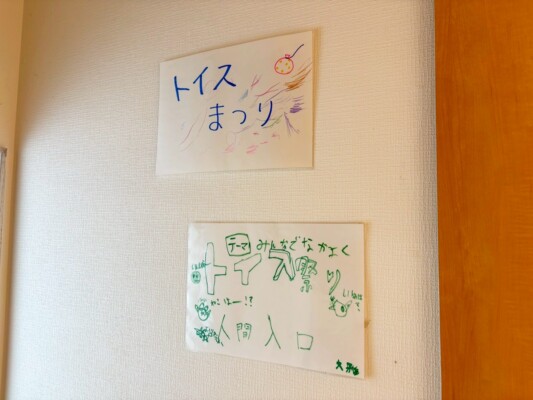 トイス
まつり
テーマ みんなでなかよく
トイス祭り
人間入口